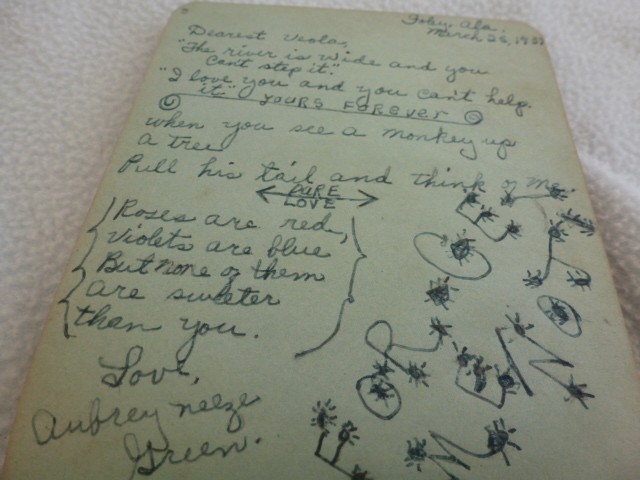 Foley, Ala.,
March 26, 1937
Dearest Viola,
"The river is wide and you
can't step it".
"I love you and you can't help
it."
YOURS FOREVER
when you see a monkey up
a tree
Pull his tail and think of Me.
PURE
LOVE
Roses are red,
Violets are blue
But none of them
are sweeter
than you.
Love,
Aubrey neeze
Green.